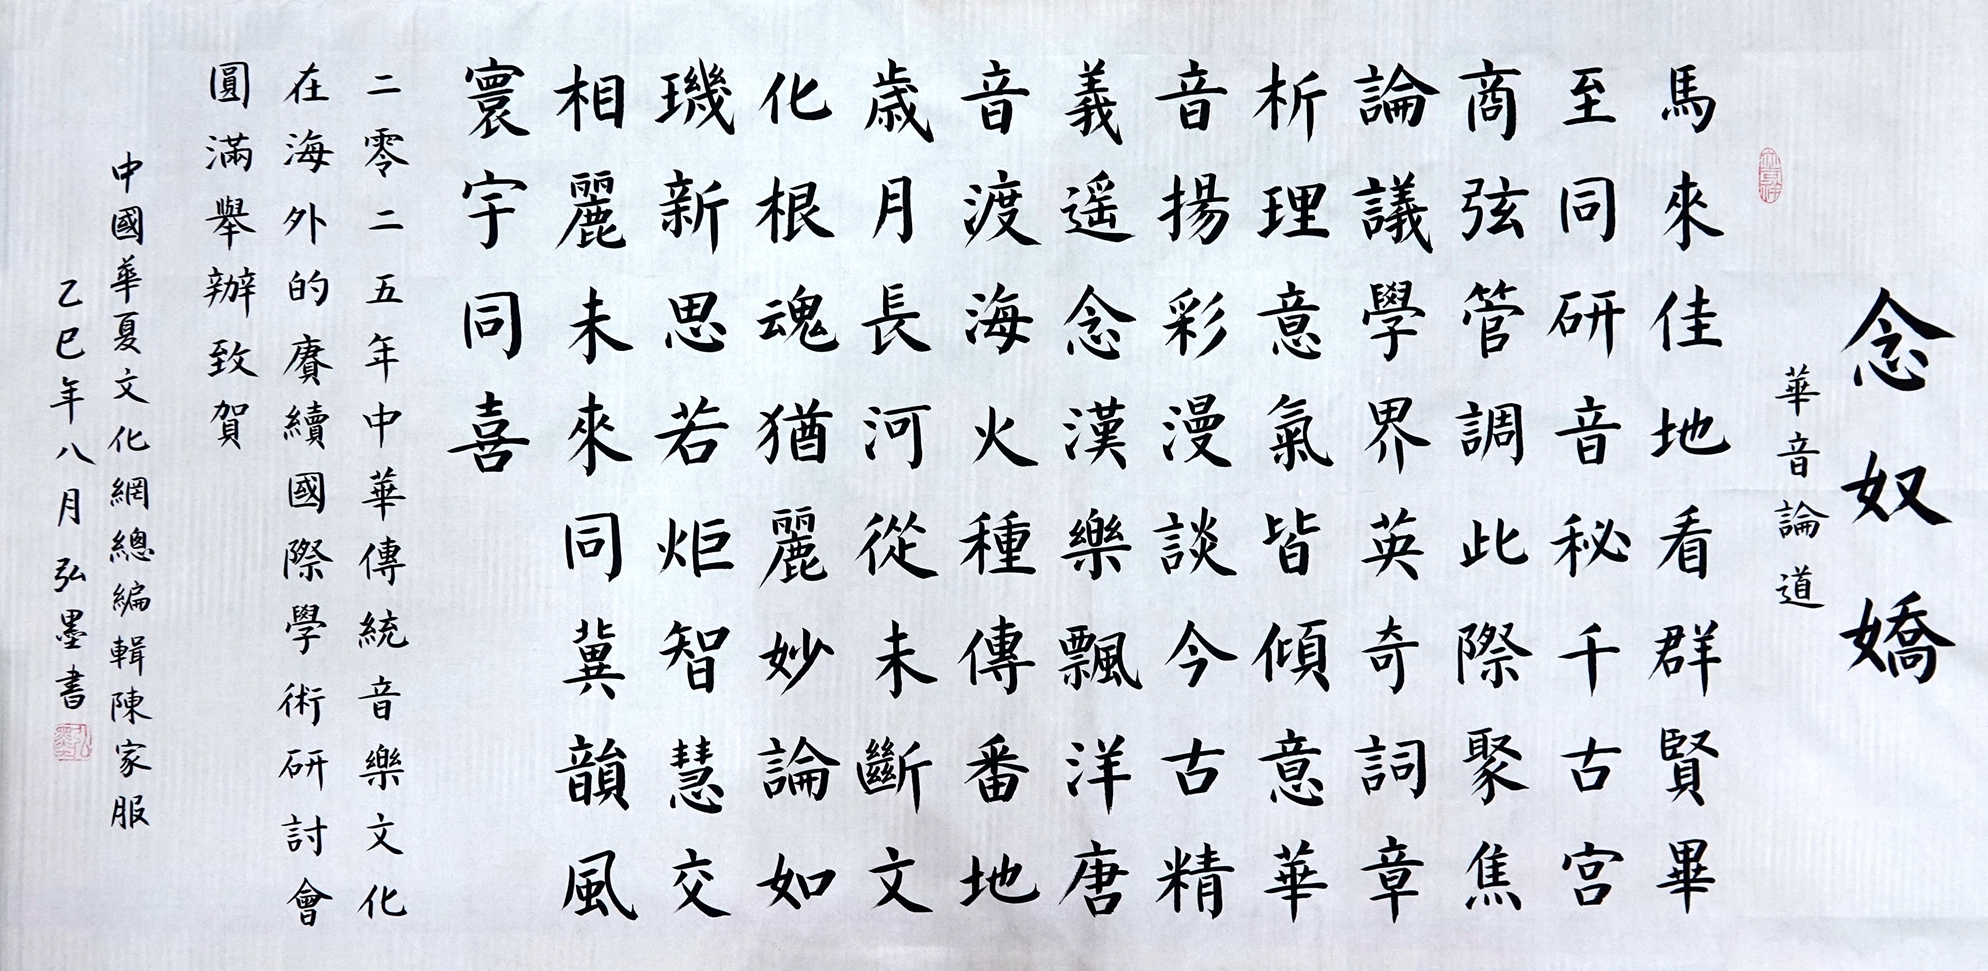 念奴嬌
華音論道
馬來佳地看群賢畢
至同研音秘千古宫
商弦管調此際聚焦
論議學界英奇詞章
析理意氣皆傾意華
音揚彩漫談今古精
義遥念漢樂飄洋唐
音渡海火種傳番地
歲月長河從未斷文
化根魂猶麗妙論如
璣新思若炬智慧交
相麗未來同冀韻風
寰宇同喜
二零二五年中華傳統音樂文化
在海外的賡續國際學術研討會
圓滿舉辦致賀
中國華夏文化網總編輯陳家服
乙巳年八月弘墨書